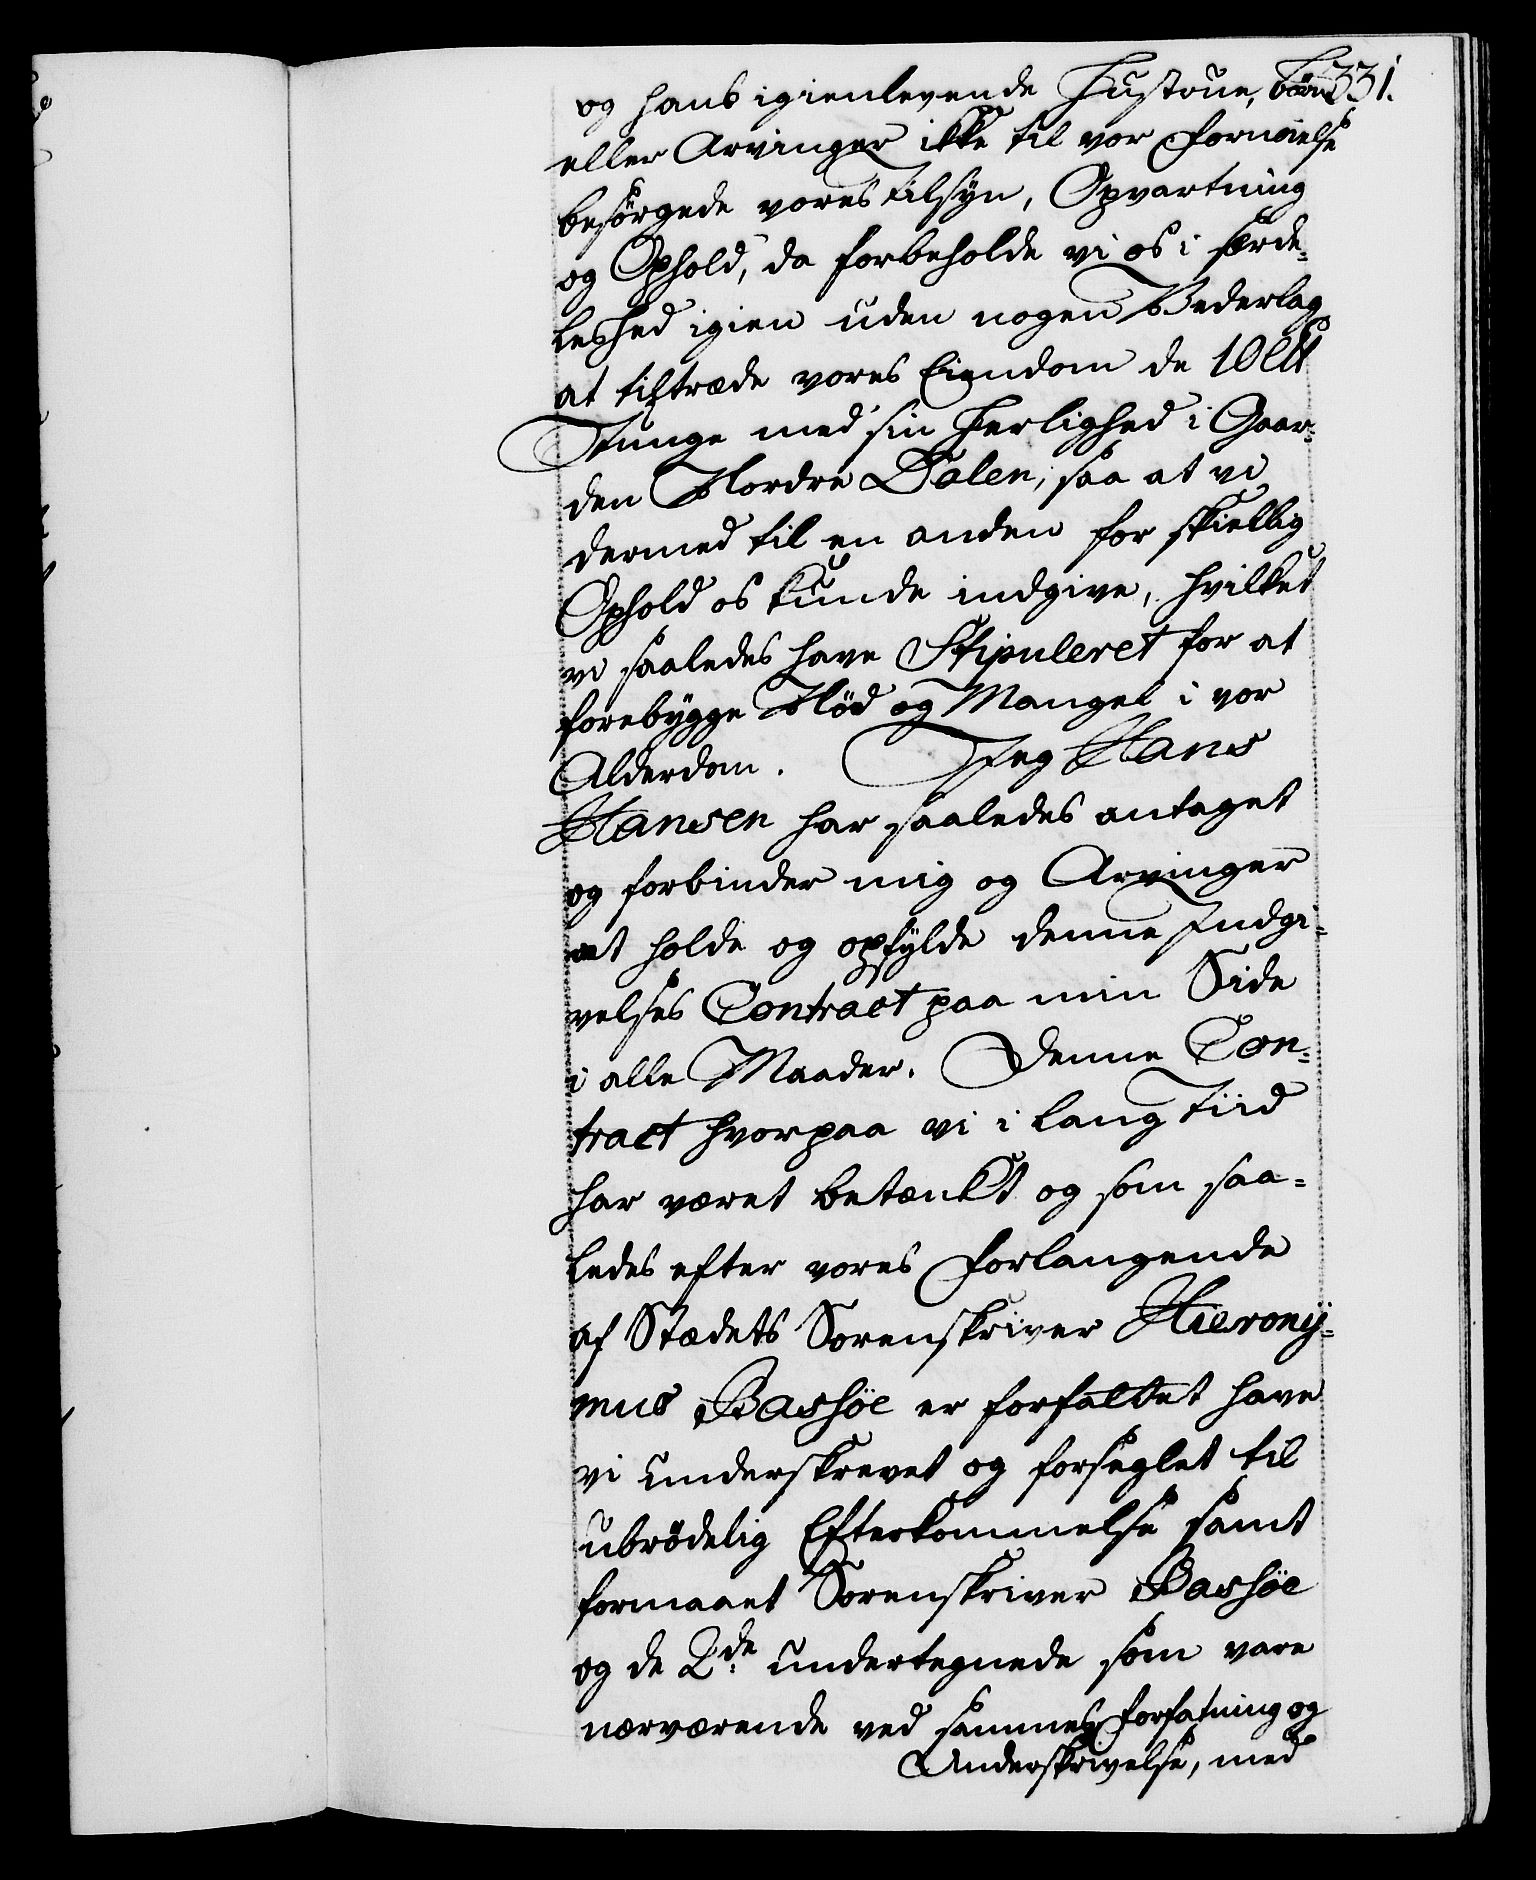 331.
og hans igienlevende Hustrue, børn
eller Arvinger ikke til vor Fornøielse
besørgede vores tilsyn, Opvartning
og Ophold, da forbeholde vi os i særde-
leshed igien uden nogen Vederlag
at tiltræde vores Eiendom de 10 L℔
Tunge med sin Herlighed i Gaar-
den Nordre Dalen, saa at vi
dermed til en anden for skiellig
Ophold os kunde indgive, hvilket
vi saaledes have Stipuleret for at
forebygge Nød og Mangel i vor
Alderdom. Jeg Hans
Hansen har saaledes antaget
og forbinder mig og Arvinger
at holde og opfylde denne Indgi-
velses Contract paa min Side
i alle Maader. Denne Con-
tract hvorpaa vi i lang Tiid
har været betænkt og som saa-
ledes efter vores Forlangende
af Stædets Sorenskriver Hierony-
mus Bassøe er forfattet have
vi underskrevet og forseglet til
ubrødelig Efterkommelse samt
formaaet Sorenskriver Bassøe
og de 2de undertegnede som vare
nærværende ved sammes Forfatning og
Underskrivelse, med